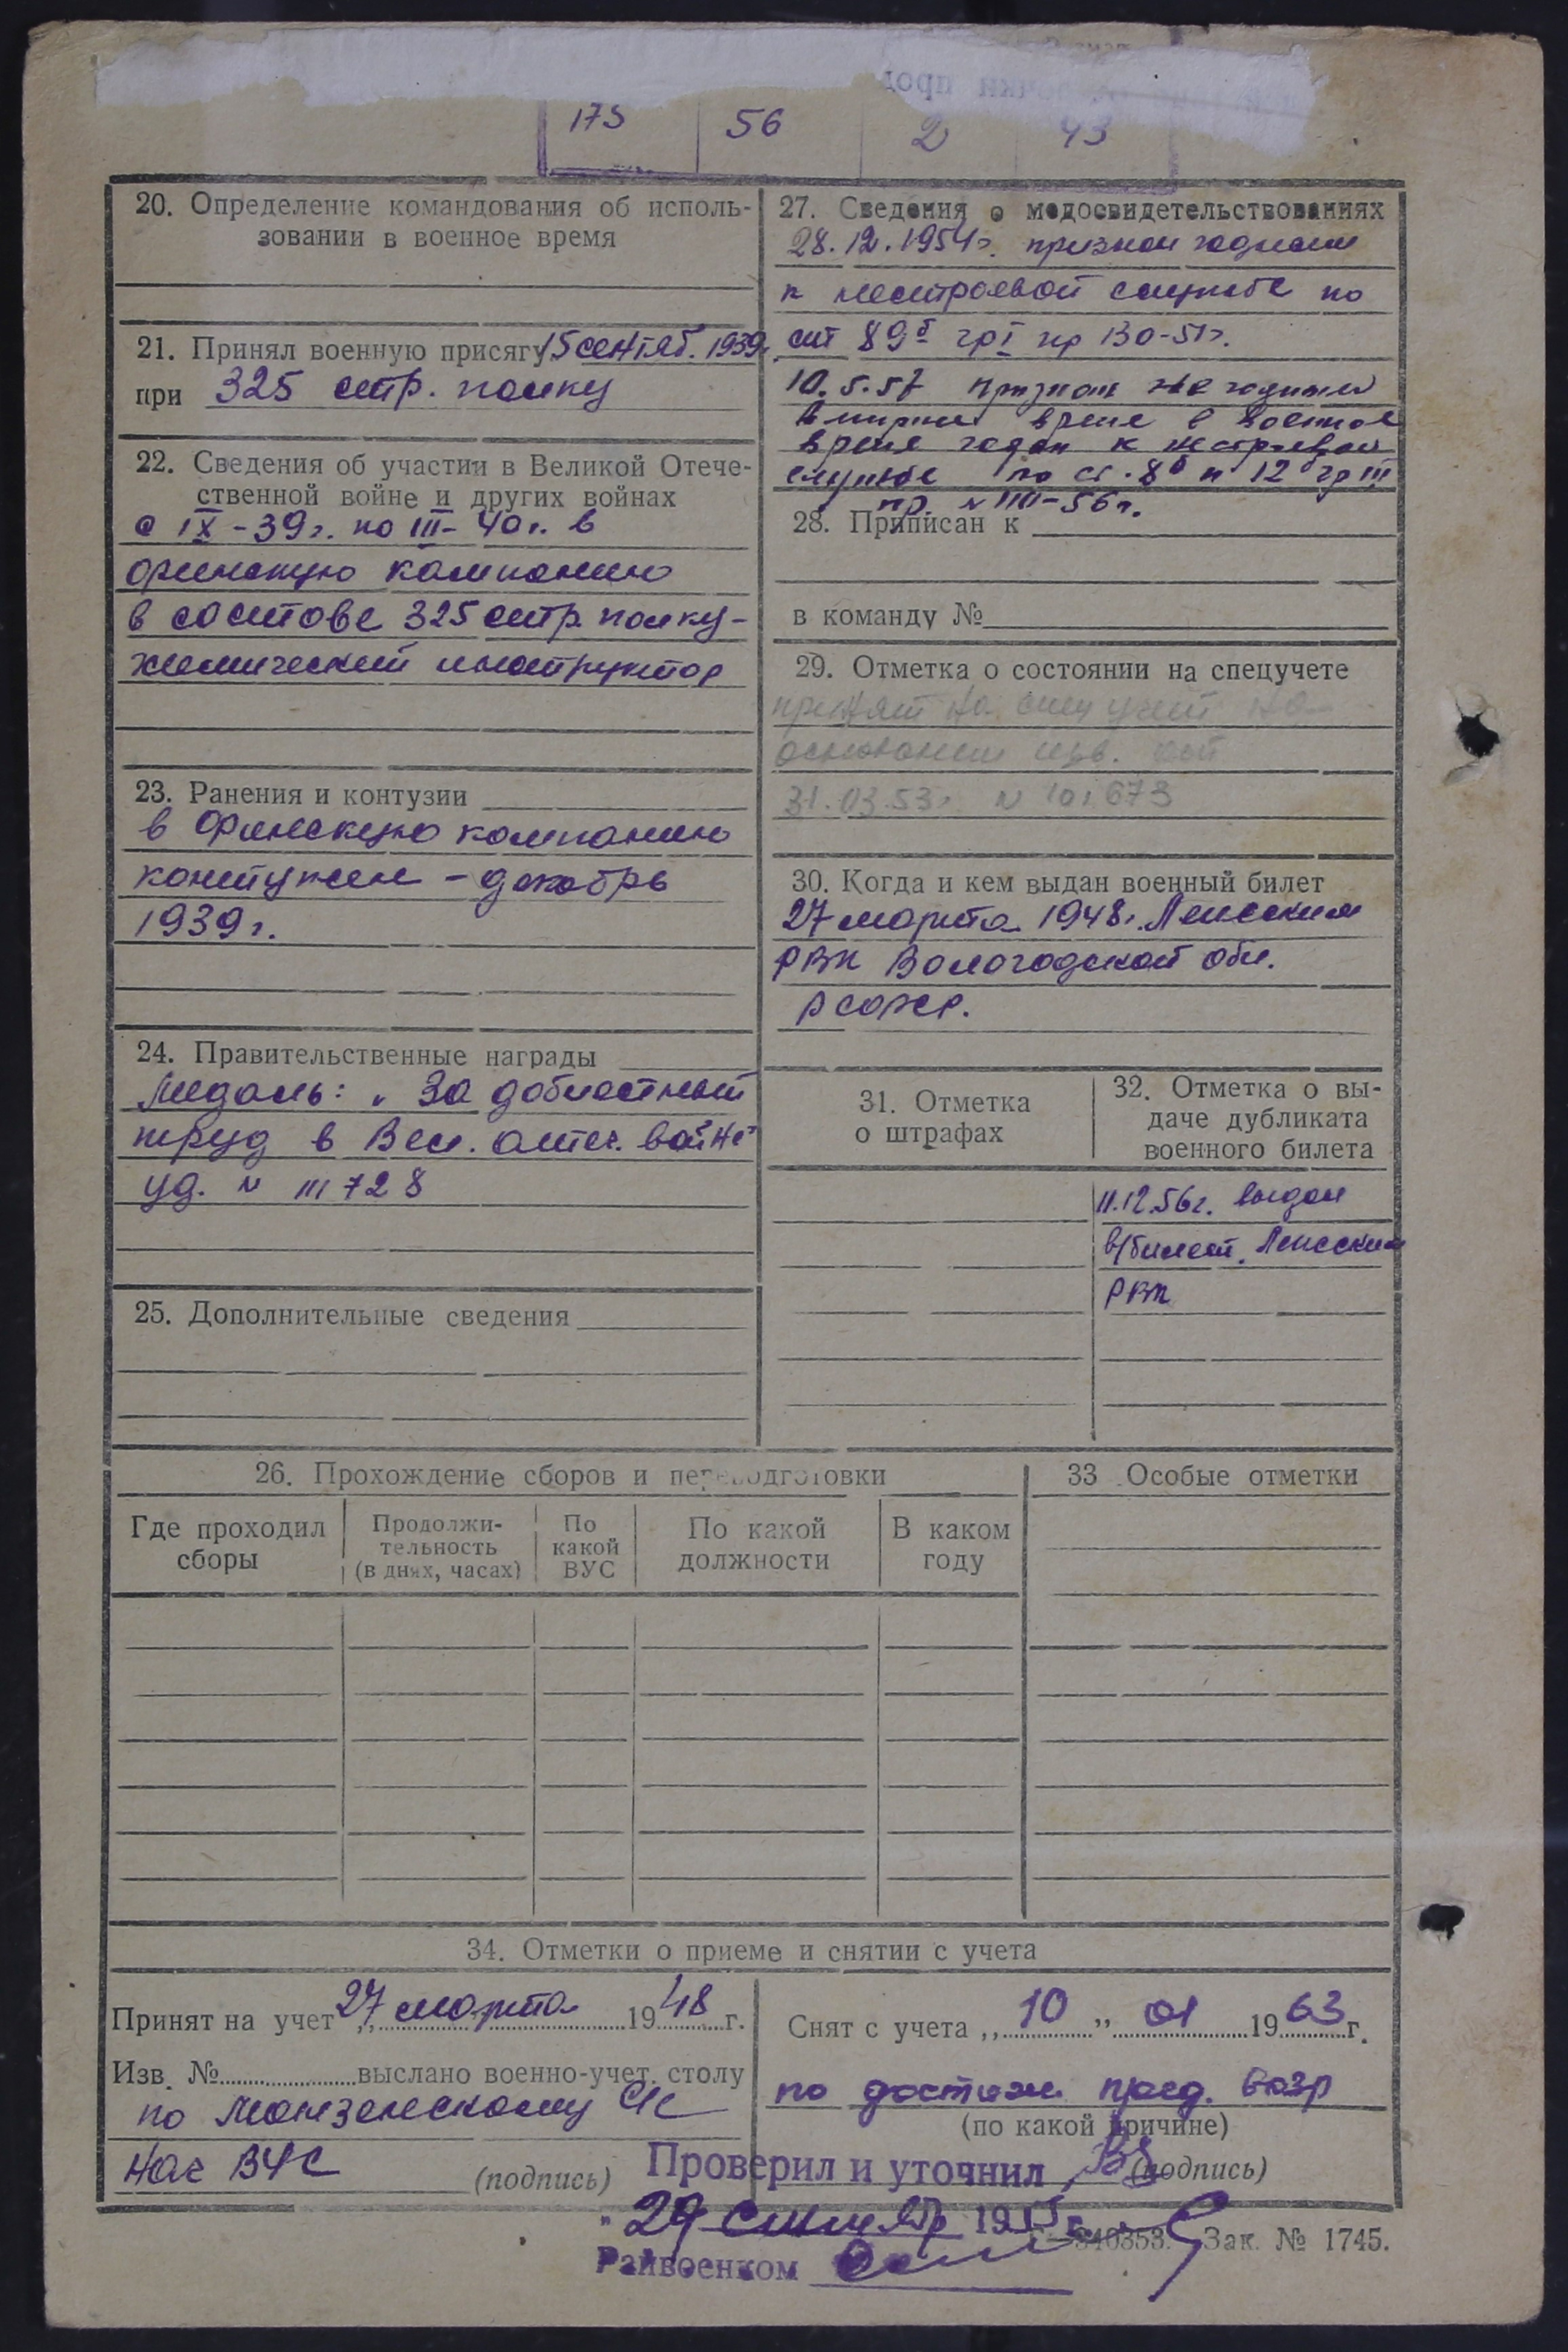 175 56 2 43
20. Определение командования об исполь-
зовании в военное время
21. Принял военную присягу 15 сентяб. 1939г.
при 325 стр. полку
22. Сведения об участии в Великой Отече-
ственной войне и других войнах
с IX-39г. по III-40г. в
финскую кампанию
в составе 325 стр. полку-
химический инструктор
23. Ранения и контузии
в Финскую компанию
контужен - декабрь
1939г.
24. Правительственные награды
Медаль: „За доблестный
труд в Вел. отеч. войне"
уд. № 111728
25. Дополнительные сведения
27. Сведения о медосвидетельствованиях
28.12.1954г. признан годным
к нестроевой службе по
ст 89б гр I пр 130-51г.
10.5.57 признан не годным
в мирное время в военное
время годен к нестроевой
службе по ст. 8б и 12б гр III
пр. № III-56г.
28. Приписан к
в команду №
29. Отметка о состоянии на спецучете
принят на спец учет на
основании изв.
31.03.53г. № 101673
30. Когда и кем выдан военный билет
27 марта 1948г. Ленским
РВК Вологодской обл.
РСФСР.
31. Отметка
о штрафах
32. Отметка о вы-
даче дубликата
военного билета
11.12.56г. выдан
в/билет. Ленским
РВК
26. Прохождение сборов и переподготовки
Где проходил
сборы
Продолжи-
тельность
(в днях, часах)
По
какой
ВУС
По какой
должности
В каком
году
33 Особые отметки
34. Отметки о приеме и снятии с учета
Принят на учет „ 27 марта 1948 г.
Изв. № выслано военно-учет. столу
по С/с
Нач ВУС
(подпись)
Снят с учета „ 10 " 01 1963 г.
по достиж. пред. возр
(по какой причине)
(подпись)
Проверил и уточнил
" 29 " 19
Райвоенком
Г—340353. Зак. № 1745.